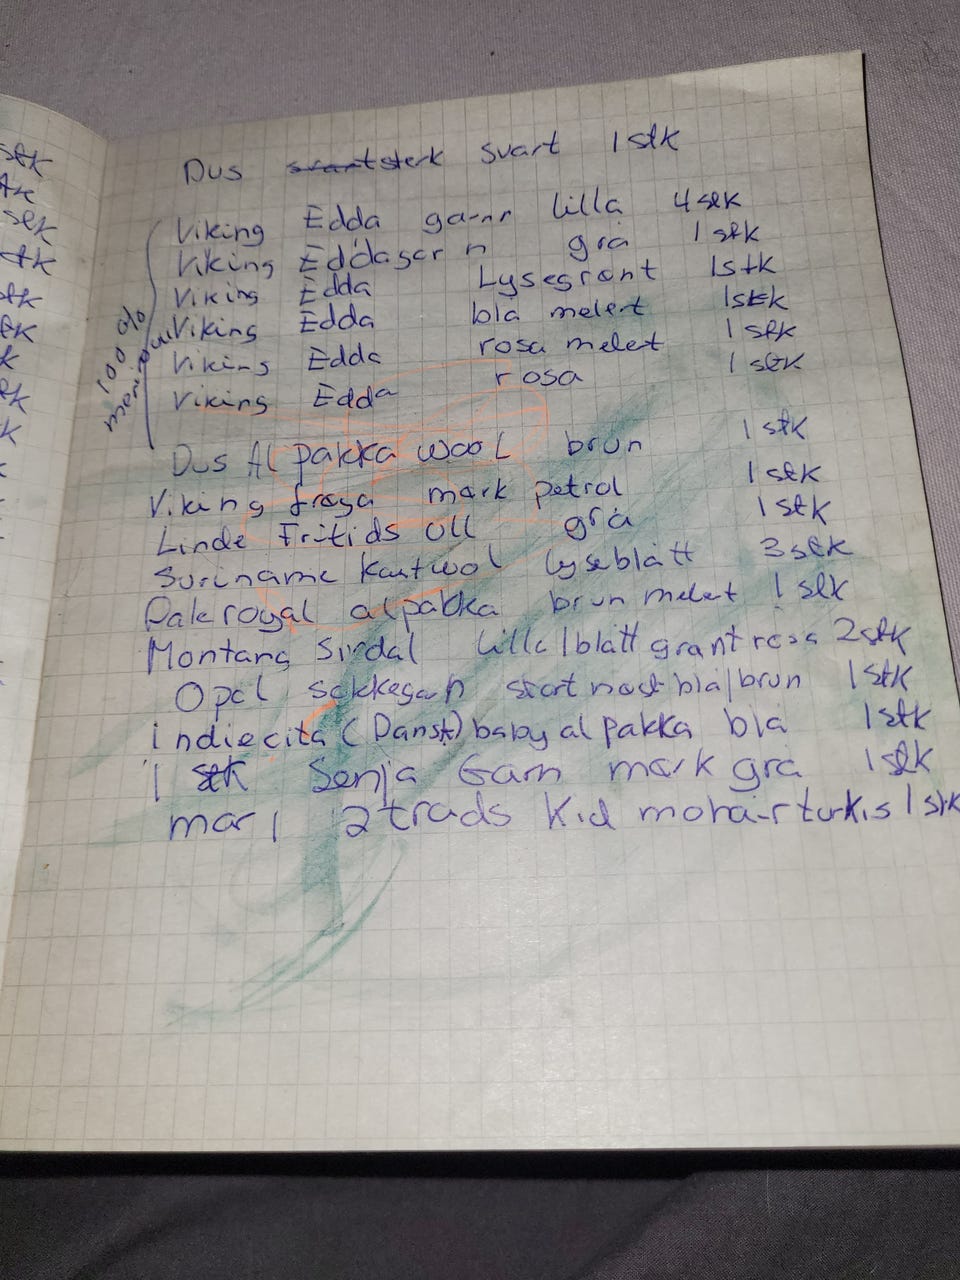 stk
stk
stk
stk
stk
stk
k
stk
k
Dus svartsterk svart 1 stk
Viking Edda garn lilla 4 stk
Viking Eddagarn grå 1 stk
Viking Edda Lysegrønt 1stk
Viking Edda blå melert 1stk
Viking Edda rosa melet 1 stk
Viking Edda rosa 1 stk
100 %
Dus Alpakka wool brun 1 stk
Viking frøya mørk petrol 1 stk
Linde Fritids Ull grå 1 stk
Suriname lyseblått 3 stk
Dale royal alpakka brun melet 1 stk
Montana Sirdal lilla/blått grønt rosa 2stk
Opal sokkegarn blå/brun 1 stk
indiecita (Dansk) baby alpakka blå 1stk
1 stk Senja Garn mørk grå 1stk
2 tråds Kid mohair turkis 1 stk